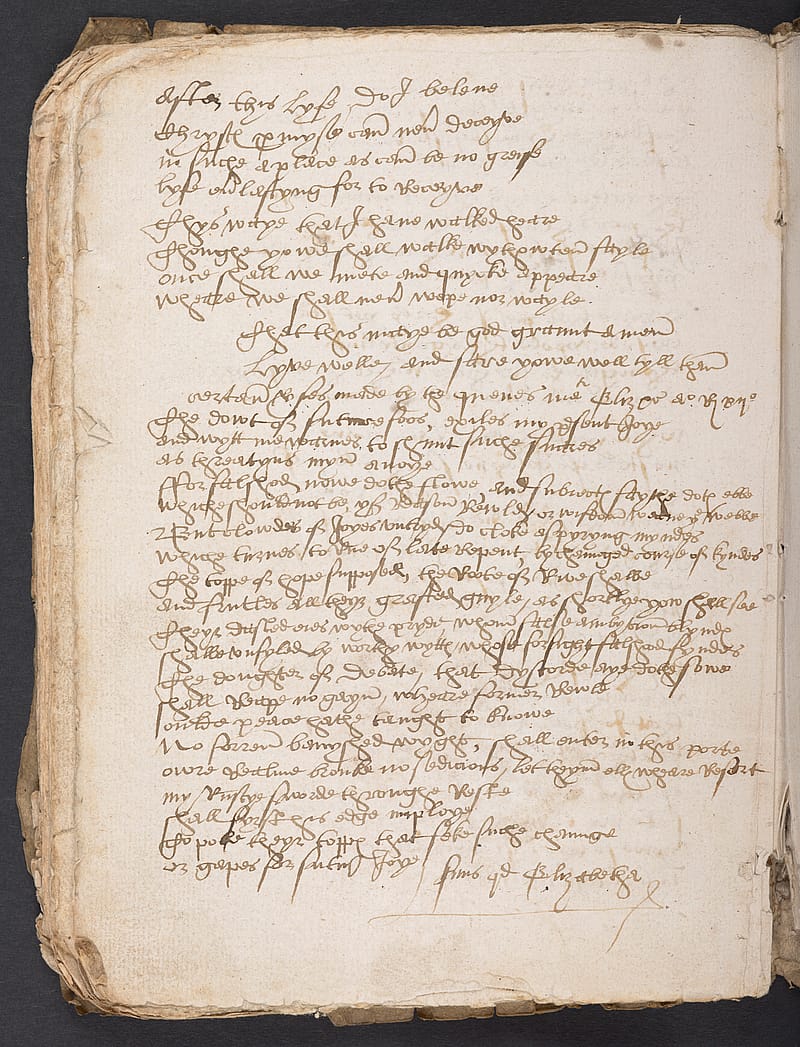 After this lyfe do I beleve
Chrystes pmyse can nevr deceyve
in suche a place as can be no greife
lyfe evrlastyng for to Receyve
Thys waye that I have walked heare
Thoughe yowe shall walke wythowten fayle
once shall we mete and quycke appeare
wheare we shall nevr wepe nor wayle.
That this maye be god graunt amen
Lyve well, and fare yowe well tyll then
certan vses made by the quenes matie Eliz
The dowt of future foos, exiles my psent Joye
and wytt me warnes, to shunt suche snares
as threatyns myn anoye
For falshod nowe dothe flowe, and subiectes faythe doth ebbe
whiche should not be, yf Reason Rewled, or wisdom weave ye webbe
But clowdes of Joyes vntryed, do cloke aspyryng myndes
whiche turnes to of late Repent, by chainged course of kyndes
The toppe of hope supposed, the Roote of Rwe shalbe
and frutles all theyr grafted guyle, as shortlye yow shall see
Theyr dasled eies wythe pryde, whom false ambytion blyndes
shalbe vnsyled by worthy wyttes, whose forsight falshod fyndes
The doughter of debate, that dyscorde aye dothe sowe
shall Reape no gayn, wheare former Rewle
 peace hathe taught to knowe
No forren banyshed wyght, shall enter in this porte
owre Realme brouke no sedicions, let theym ells wheare Resort
my Rustye sworde throughe Reste
shall fyrst his edge imploye
To polle theyr toppes that seke suche chaunge
or gapes for future Joye
finis qd Elizabetha